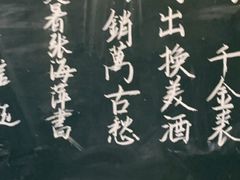 千金裘
出換美酒
銷萬古愁
看张海萍書